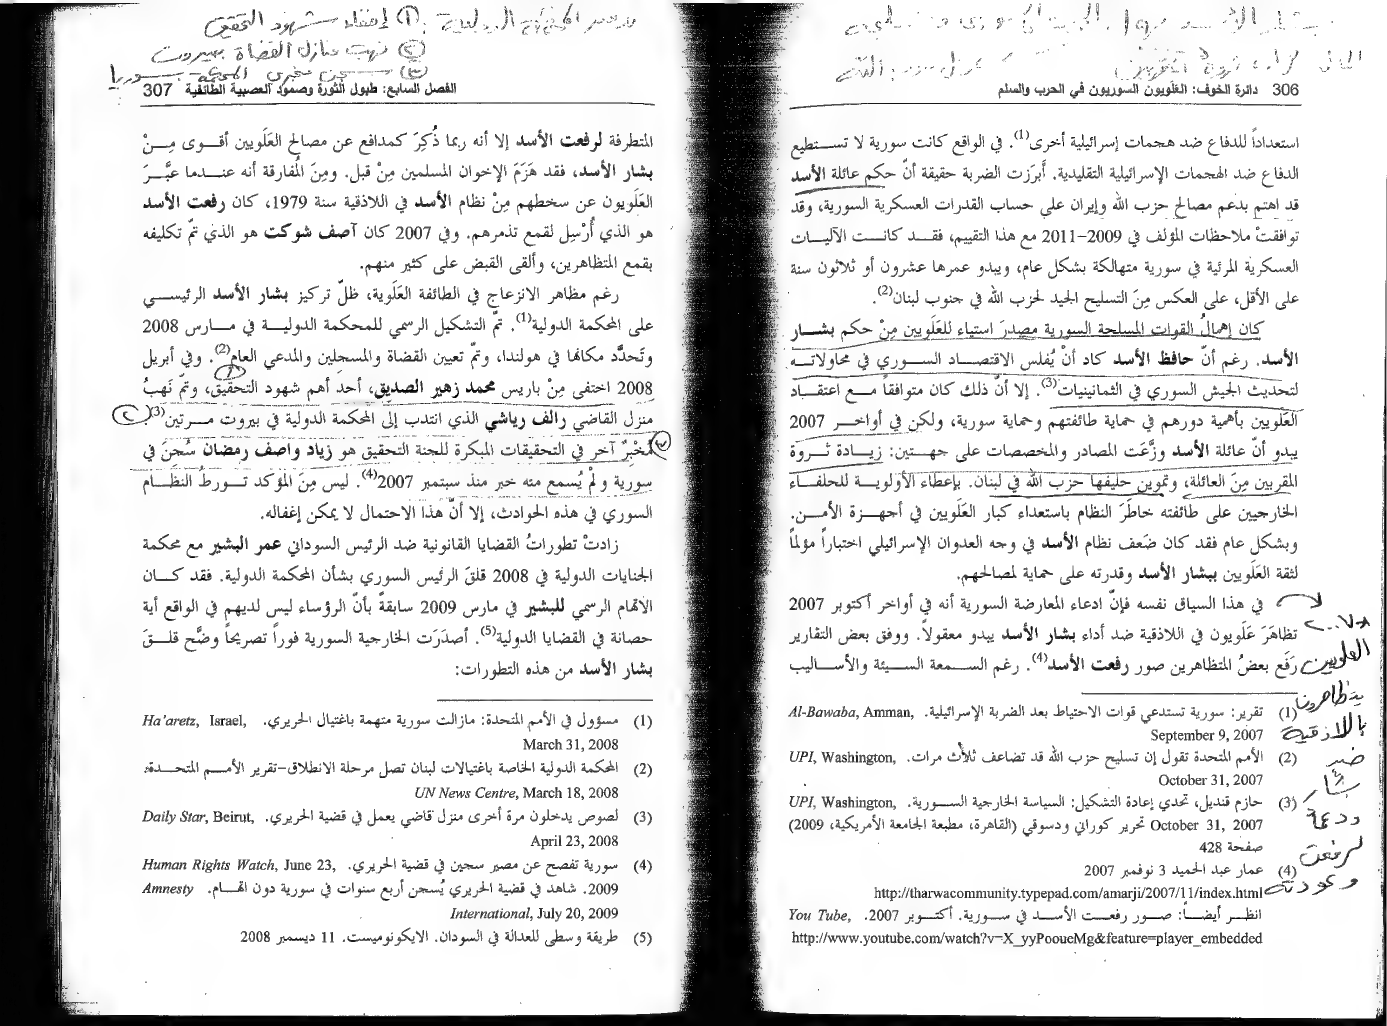 306 دائرة الخوف: العَلَويون السوريون في الحرب والسلم
استعداداً للدفاع ضد هجمات إسرائيلية أخرى(1). في الواقع كانت سورية لا تستطيع
الدفاع ضد الهجمات الإسرائيلية التقليدية. أَبرَزت الضربة حقيقة أنّ حكم عائلة الأسد
قد اهتم بدعم مصالح حزب الله وإيران على حساب القدرات العسكرية السورية، وقد
توافقتْ ملاحظات المؤلف في 2009-2011 مع هذا التقييم، فقد كانت الآليات
العسكرية المرئية في سورية متهالكة بشكل عام، ويبدو عمرها عشرون أو ثلاثون سنة
على الأقل، على العكس مِنَ التسليح الجيد لحزب الله في جنوب لبنان(2).
كان إهمالُ القوات المسلحة السورية مصدرَ استياء للعَلَويين مِنْ حكم بشار
الأسد. رغم أنّ حافظ الأسد كاد أنْ يُفلس الاقتصاد السوري في محاولاته
لتحديث الجيش السوري في الثمانينيات(3). إلا أنّ ذلك كان متوافقاً مع اعتقاد
العَلَويين بأهمية دورهم في حماية طائفتهم وحماية سورية، ولكن في أواخر 2007
يبدو أنّ عائلة الأسد وزَّعَت المصادر والمخصصات على جهتين: زيادة ثروة
المقربين مِنَ العائلة، وتموين حليفها حزب الله في لبنان. بإعطاء الأولوية للحلفاء
الخارجيين على طائفته خاطَرَ النظام باستعداء كبار العَلَويين في أجهزة الأمن.
وبشكل عام فقد كان ضَعف نظام الأسد في وجه العدوان الإسرائيلي اختباراً مؤلماً
لثقة العَلَويين ببشار الأسد وقدرته على حماية لمصالحهم.
في هذا السياق نفسه فإنّ ادعاء المعارضة السورية أنه في أواخر أكتوبر 2007
تظاهَرَ عَلَويون في اللاذقية ضد أداء بشار الأسد يبدو معقولاً. ووفق بعض التقارير
رَفَع بعضُ المتظاهرين صور رفعت الأسد(4). رغم السمعة السيئة والأساليب
٢٠٠٧
العلويين
يتظاهرون
باللاذقية
ضد
بشار
لرفعت
وعودته
(1) تقرير: سورية تستدعي قوات الاحتياط بعد الضربة الإسرائيلية. Al-Bawaba, Amman,
September 9, 2007
(2) الأمم المتحدة تقول إن تسليح حزب الله قد تضاعف ثلاث مرات. UPI, Washington,
October 31, 2007
(3) حازم قنديل، تحدي إعادة التشكيل: السياسة الخارجية السورية. UPI, Washington,
October 31, 2007 تحرير كوراني ودسوقي (القاهرة، مطبعة الجامعة الأمريكية، 2009)
صفحة 428
(4) عمار عبد الحميد 3 نوفمبر 2007
http://tharwacommunity.typepad.com/amarji/2007/11/index.html
انظر أيضاً: صور رفعت الأسد في سورية. أكتوبر 2007. You Tube,
http://www.youtube.com/watch?v=X_yyPooueMg&feature=player_embedded
① إخفاء شهود التحقيق
② نهب منازل القضاة ببيروت
الفصل السابع: طبول الثورة وصمود العصبية الطائفية 307
المتطرفة لرفعت الأسد إلا أنه ربما ذُكِرَ كمدافع عن مصالح العَلَويين أقوى مِنْ
بشار الأسد، فقد هَزَمَ الإخوان المسلمين مِنْ قبل. ومِنَ المُفارقة أنه عندما عبَّرَ
العَلَويون عن سخطهم مِنْ نظام الأسد في اللاذقية سنة 1979، كان رفعت الأسد
هو الذي أُرْسِل لقمع تذمرهم. وفي 2007 كان آصف شوكت هو الذي تمّ تكليفه
بقمع المتظاهرين، وألقى القبض على كثير منهم.
رغم مظاهر الانزعاج في الطائفة العَلَوية، ظلّ تركيز بشار الأسد الرئيسي
على المحكمة الدولية(1). تمّ التشكيل الرسمي للمحكمة الدولية في مارس 2008
وتَحدَّد مكانها في هولندا، وتمّ تعيين القضاة والمسجلين والمدعي العام(2). وفي أبريل
2008 اختفى مِنْ باريس محمد زهير الصديق، أحد أهم شهود التحقيق، وتمّ نَهبُ
منزل القاضي رالف رياشي الذي انتدب إلى المحكمة الدولية في بيروت مرتين(3).
مُخْبِرٌ آخر في التحقيقات المبكرة للجنة التحقيق هو زياد واصف رمضان سُجنَ في
سورية ولمْ يُسمع منه خبر منذ سبتمبر 2007(4). ليس مِنَ المؤكد تورطُ النظام
السوري في هذه الحوادث، إلا أنّ هذا الاحتمال لا يمكن إغفاله.
زادتْ تطوراتُ القضايا القانونية ضد الرئيس السوداني عمر البشير مع محكمة
الجنايات الدولية في 2008 قلقَ الرئيس السوري بشأن المحكمة الدولية. فقد كان
الاتهام الرسمي للبشير في مارس 2009 سابقةً بأنّ الرؤساء ليس لديهم في الواقع أية
حصانة في القضايا الدولية(5). أصدَرَت الخارجية السورية فوراً تصريحاً وضَّح قلقَ
بشار الأسد من هذه التطورات:
(1) مسؤول في الأمم المتحدة: مازالت سورية متهمة باغتيال الحريري. Ha'aretz, Israel,
March 31, 2008
(2) المحكمة الدولية الخاصة باغتيالات لبنان تصل مرحلة الانطلاق-تقرير الأمم المتحدة.
UN News Centre, March 18, 2008
(3) لصوص يدخلون مرة أخرى منزل قاضي يعمل في قضية الحريري. Daily Star, Beirut,
April 23, 2008
(4) سورية تفصح عن مصير سجين في قضية الحريري. Human Rights Watch, June 23,
2009. شاهد في قضية الحريري يُسجن أربع سنوات في سورية دون اتهام. Amnesty
International, July 20, 2009
(5) طريقة وسطى للعدالة في السودان. الايكونوميست. 11 ديسمبر 2008